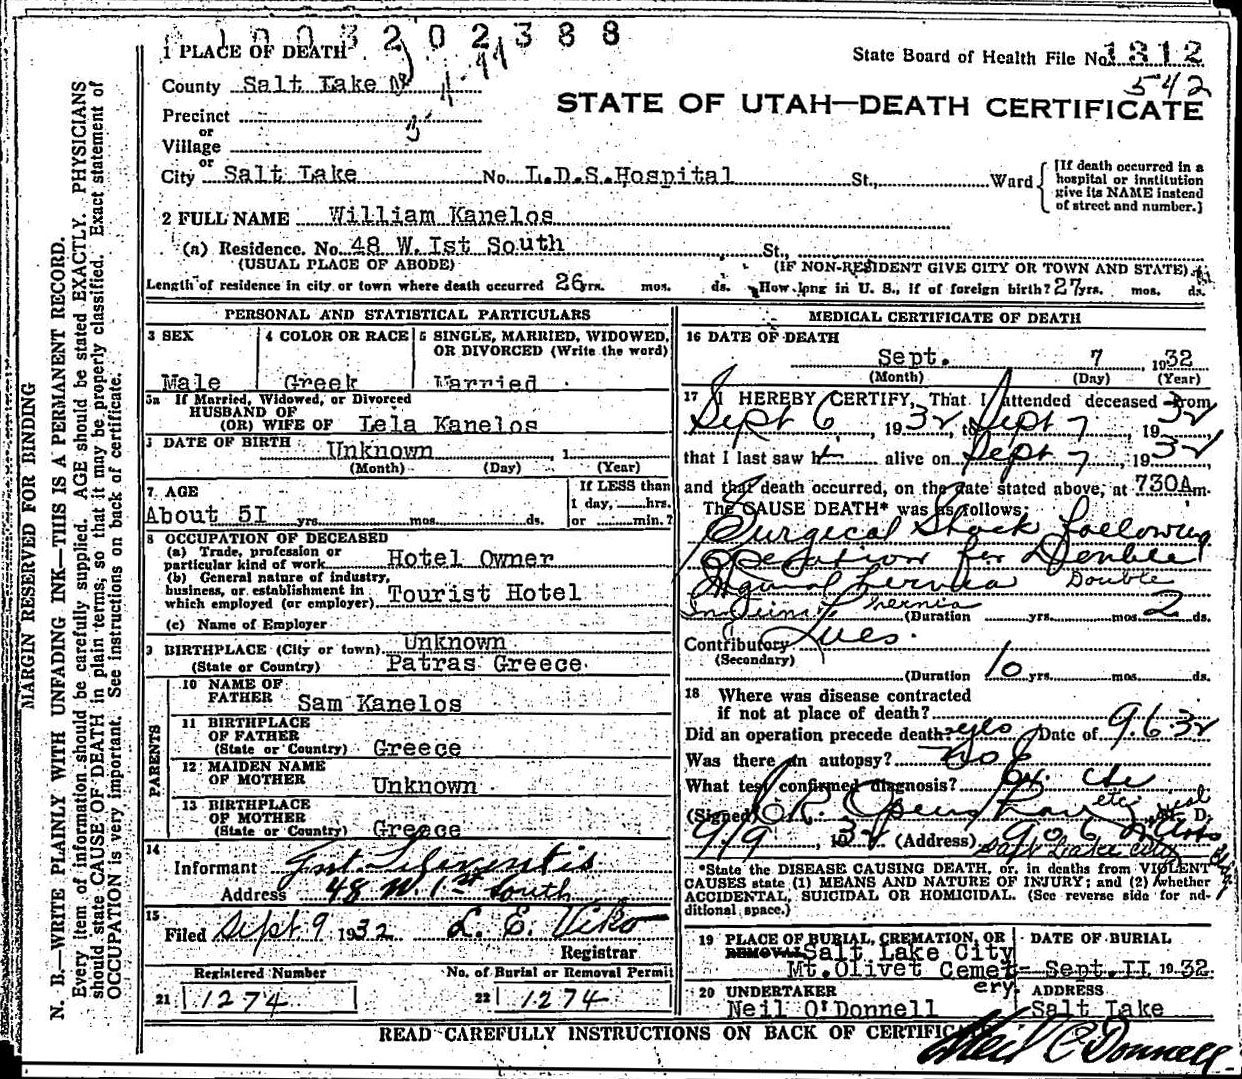 1003202388
1 PLACE OF DEATH
State Board of Health File No. 1312
County Salt Lake
542
STATE OF UTAH—DEATH CERTIFICATE
Precinct
or
Village
or
City Salt Lake No. L.D.S.Hospital St., Ward
[If death occurred in a
hospital or institution
give its NAME instead
of street and number.]
2 FULL NAME William Kanelos
(a) Residence. No. 48 W. Ist South St.,
(USUAL PLACE OF ABODE) (IF NON-RESIDENT GIVE CITY OR TOWN AND STATE)
Length of residence in city or town where death occurred 26 yrs. mos. ds. How long in U. S., if of foreign birth? 27 yrs. mos. ds.
PERSONAL AND STATISTICAL PARTICULARS
3 SEX 4 COLOR OR RACE 5 SINGLE, MARRIED, WIDOWED,
OR DIVORCED (Write the word)
Male Greek Married
5a If Married, Widowed, or Divorced
HUSBAND OF
(OR) WIFE OF Lela Kanelos
DATE OF BIRTH Unknown , 1
(Month) (Day) (Year)
7 AGE If LESS than
1 day, hrs.
About 5I yrs. mos. ds. or min.?
8 OCCUPATION OF DECEASED
(a) Trade, profession or
particular kind of work Hotel Owner
(b) General nature of industry,
business, or establishment in
which employed (or employer) Tourist Hotel
(c) Name of Employer
9 BIRTHPLACE (City or town) Unknown
(State or Country) Patras Greece
PARENTS
10 NAME OF
FATHER Sam Kanelos
11 BIRTHPLACE
OF FATHER
(State or Country) Greece
12 MAIDEN NAME
OF MOTHER Unknown
13 BIRTHPLACE
OF MOTHER
(State or Country) Greece
14
Informant
Address 48 W. 1st South
15
Filed Sept 9 1932 L. E. Viko
Registrar
Registered Number No. of Burial or Removal Permit
21 1274 22 1274
MEDICAL CERTIFICATE OF DEATH
16 DATE OF DEATH
Sept. 7 , 1932
(Month) (Day) (Year)
17 I HEREBY CERTIFY, That I attended deceased from
Sept 6, 1932, to Sept 7, 1932
that I last saw h alive on Sept 7, 1932,
and that death occurred, on the date stated above, at 730A m.
The CAUSE DEATH* was as follows:
Surgical Shock following
operation for Double
hernia Double
hernia
(Duration yrs. mos. 2 ds.
Contributory Lues.
(Secondary)
(Duration 10 yrs. mos. ds.
18 Where was disease contracted
if not at place of death?
Did an operation precede death? yes Date of 9.6.32
Was there an autopsy? no
What test confirmed diagnosis?
(Signed) M. D.
9/9, 1932 (Address) 906
Salt Lake City
*State the DISEASE CAUSING DEATH, or, in deaths from VIOLENT
CAUSES state (1) MEANS AND NATURE OF INJURY; and (2) whether
ACCIDENTAL, SUICIDAL OR HOMICIDAL. (See reverse side for ad-
ditional space.)
19 PLACE OF BURIAL, CREMATION, OR DATE OF BURIAL
REMOVAL Salt Lake City
Mt.Olivet Cemet- Sept. II 1932.
ery.
20 UNDERTAKER ADDRESS
Neil O'Donnell Salt Lake
READ CAREFULLY INSTRUCTIONS ON BACK OF CERTIFICATE
Neil O'Donnell
MARGIN RESERVED FOR BINDING
N. B.—WRITE PLAINLY WITH UNFADING INK—THIS IS A PERMANENT RECORD.
Every item of information should be carefully supplied. AGE should be stated EXACTLY. PHYSICIANS
should state CAUSE OF DEATH in plain terms, so that it may be properly classified. Exact statement of
OCCUPATION is very important. See instructions on back of certificate.